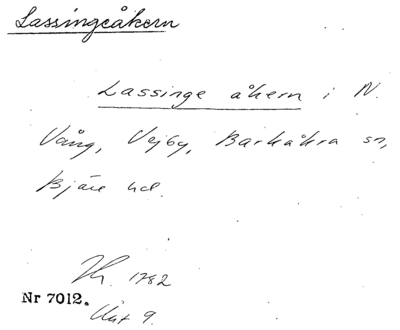 Lassingeåkern
Lassinge åkern i N.
Vång, Vejby, Barkåkra sn,
Bjäre hd.
1782
Nr 7012.
9.